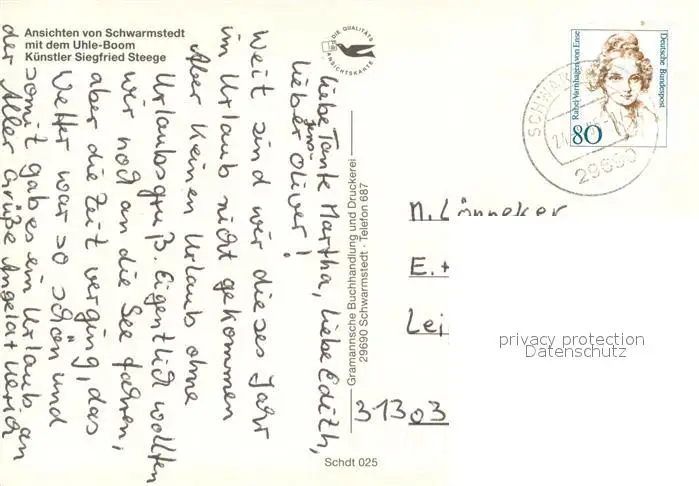 Ansichten von Schwarmstedt
mit dem Uhle-Boom
Künstler Siegfried Steege
DIE QUALITÄTS
ANSICHTSKARTE
Deutsche Bundespost
Rahel Varnhagen von Ense
80
29690
liebe Tante Martha, liebe Edith,
lieber Oliver!
Weit sind wir dieses Jahr
im Urlaub nicht gekommen
Aber keinen Urlaub ohne
Urlaubsgruß. Eigentlich wollten
wir noch an die See fahren,
aber die Zeit verging, das
Wetter war so schön und
somit gab es ein Urlaub an
der Aller Grüße
Gramannsche Buchhandlung und Druckerei
29690 Schwarmstedt · Telefon 687
M. Lönneker
E. +
Lei
31303
privacy protection
Datenschutz
Schdt 025